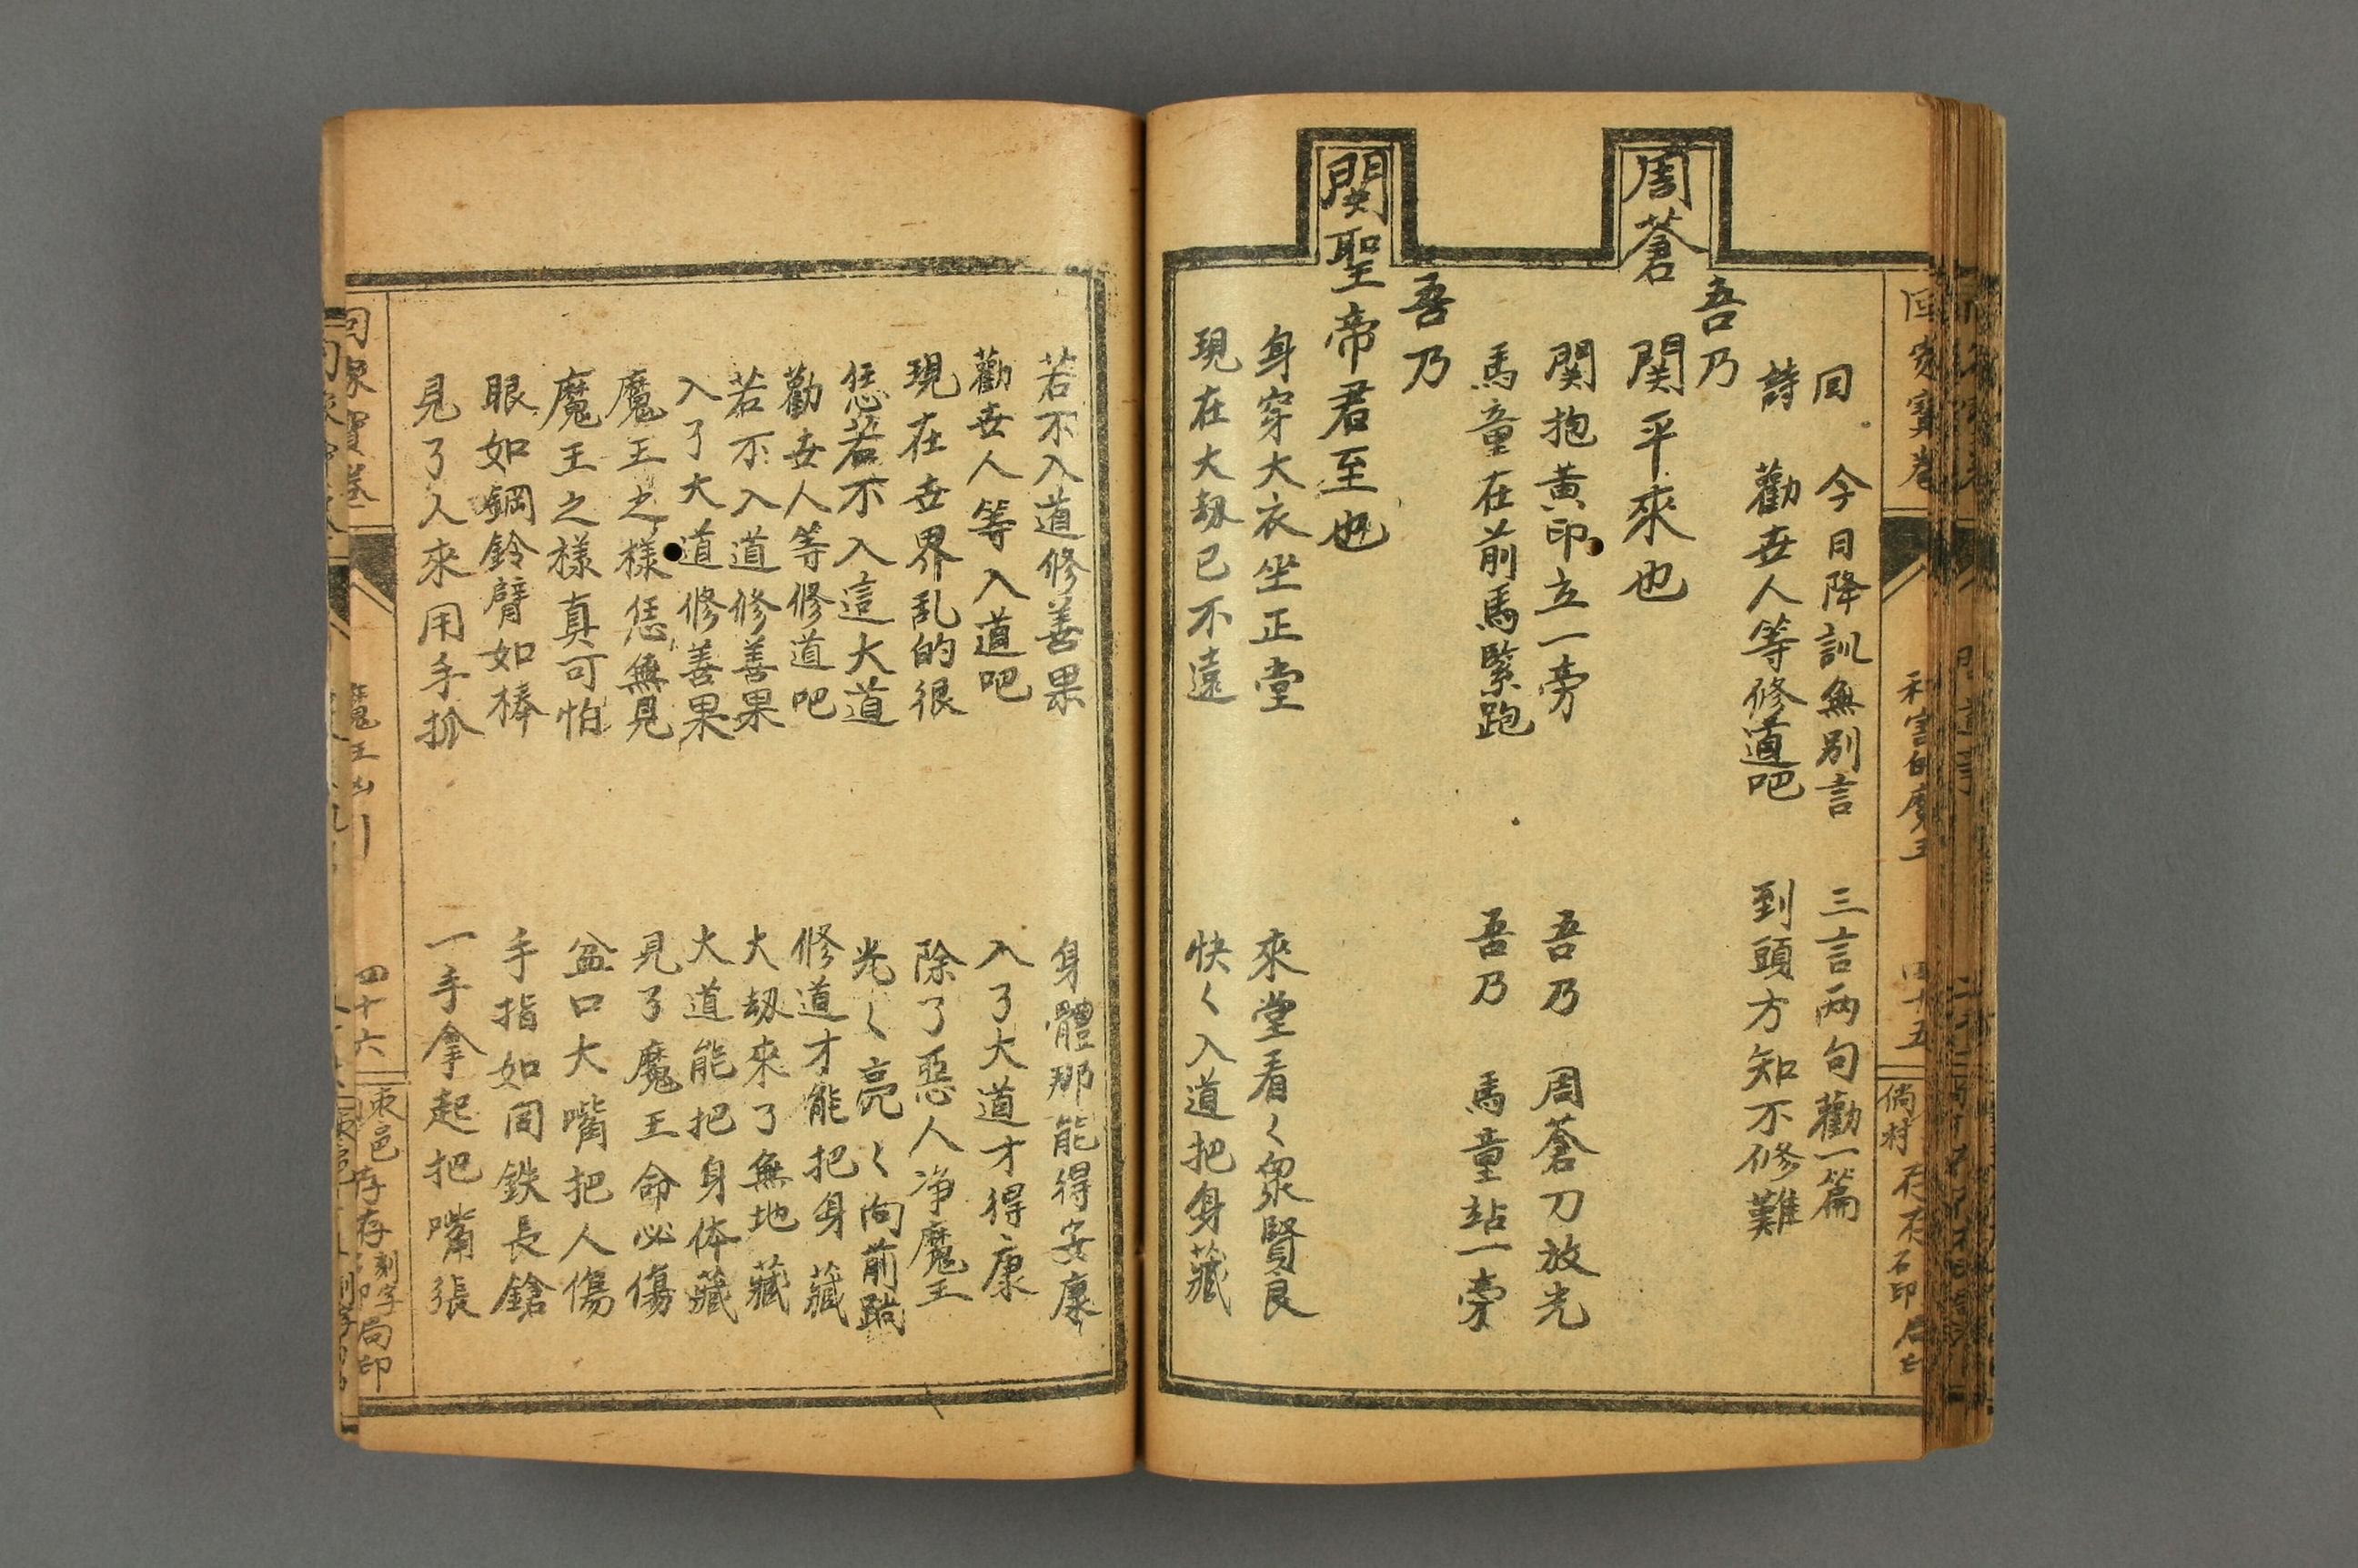 回家寶卷 利害的魔王 四十五
曰 今日降訓無别言 三言两句勸一篇
詩 勸世人等修道吧 到頭方知不修難
吾乃
周蒼 関平來也
関抱黄印立一旁 吾乃 周蒼刀放光
馬童在前馬緊跑 吾乃 馬童站一旁
吾乃
関聖帝君至也
身穿大衣坐正堂 來堂看く衆賢良
現在大刼已不遠 快く入道把身藏
若不入道修善果 身體那能得安康
勸世人等入道吧 入了大道才得康
現在世界乱的很 除了惡人净魔王
恁若不入這大道 光く亮く向前蹚
勸世人等修道吧 修道才能把身藏
若不入道修善果 大刼來了無地藏
入了大道修善果 大道能把身体藏
魔王之樣恁無見 見了魔王命必傷
魔王之樣真可怕 盆口大嘴把人傷
眼如鋼鈴臂如棒 手指如同鉄長鎗
見了人來用手抓 一手拿起把嘴張
回家寶卷 魔王凶 四十六